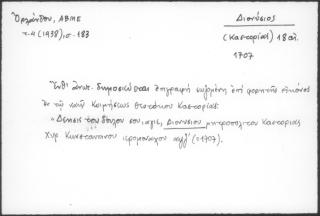 Ὀρλάνδου, ΑΒΜΕ
τ. 4 (1938), σ. 183
Διονύσιος
(Καστοριάς) 18 αἰ.
1707
Ἔνθ' ἀνωτ. δημοσιεύεται ἐπιγραφή σωζομένη ἐπί φορητῆς εἰκόνος
ἐκ τῆς Κοιμήσεως Θεοτόκου Καστορίας:
"Δέησις τοῦ δούλου σου Διονυσίου μητροπολίτου Καστορίας
Χυρ Κωνσταντίνου ἱερομονάχου αψζ' (=1707).